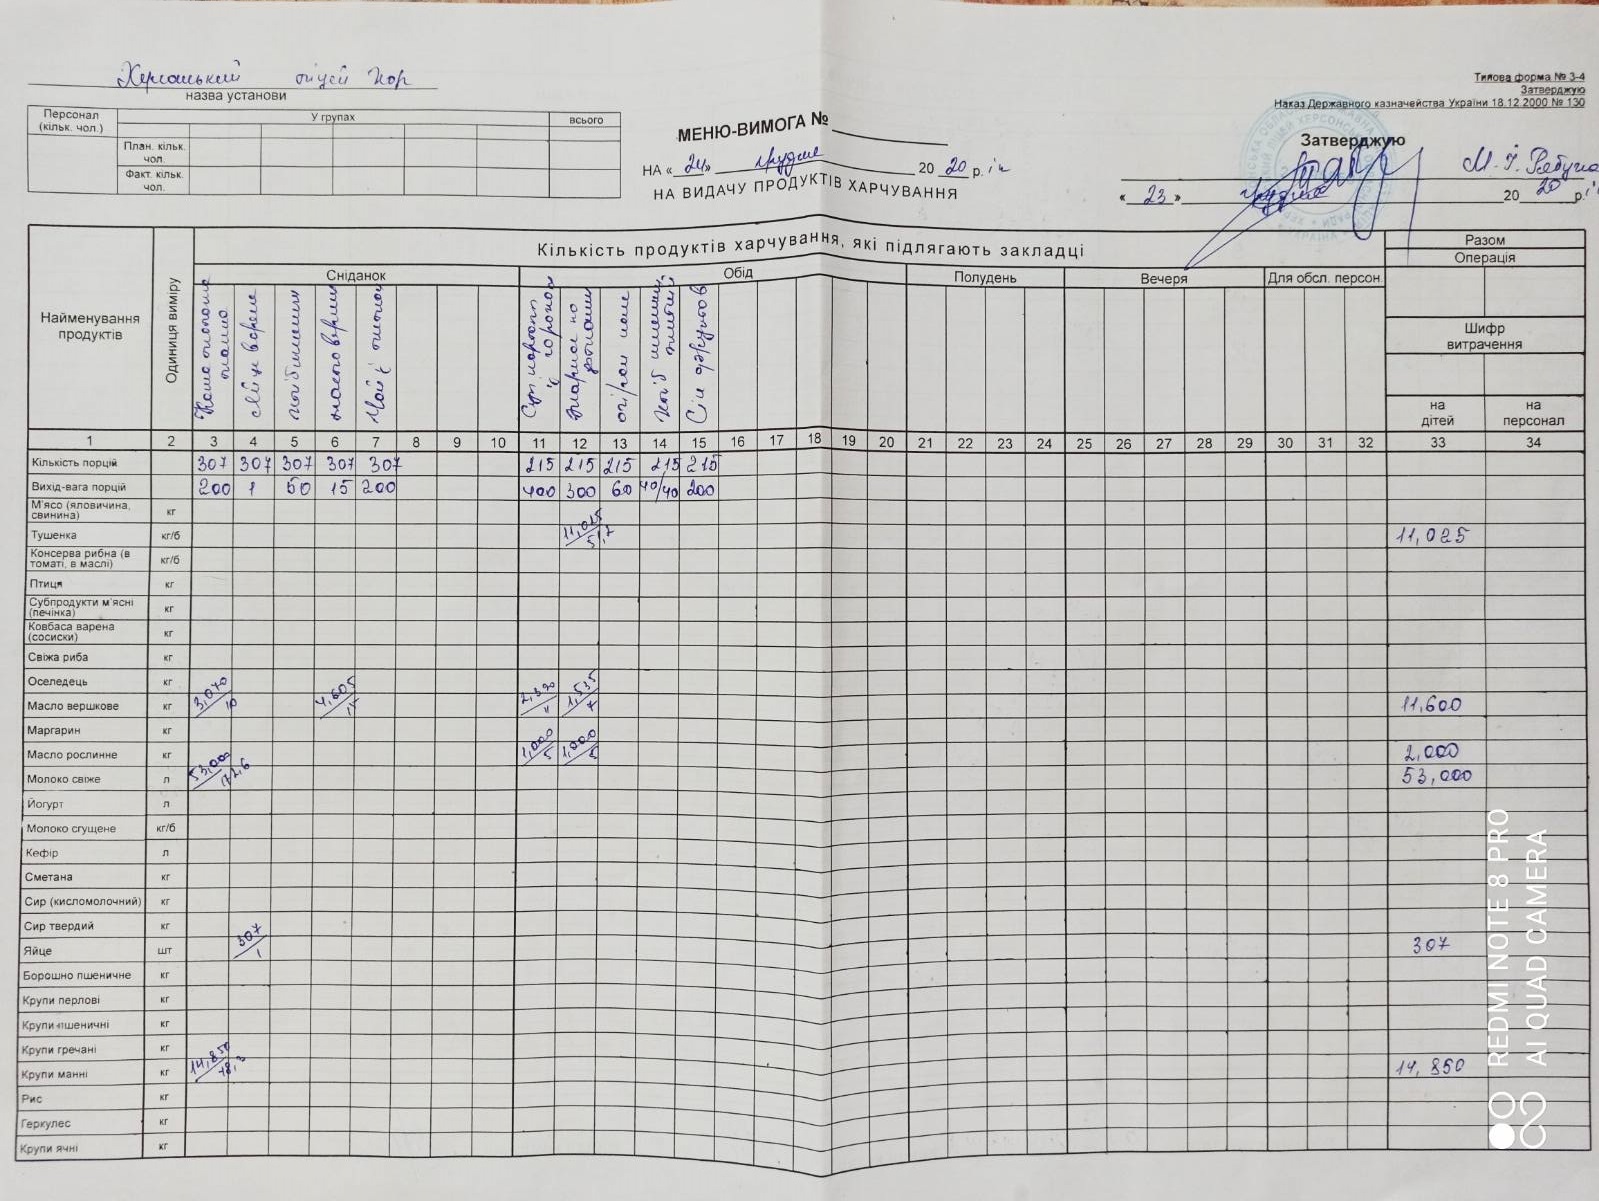 Херсонський ліцей
назва установи
Типова форма № 3-4
Затверджую
Наказ Державного казначейства України 18.12.2000 № 130
Персонал (кільк. чол.)
У групах
всього
План. кільк. чол.
Факт. кільк. чол.
МЕНЮ-ВИМОГА №
НА « 24 » грудня 20 20 р.
НА ВИДАЧУ ПРОДУКТІВ ХАРЧУВАННЯ
Затверджую
« 23 » грудня 20 20 р.
Найменування продуктів
Одиниця виміру
Кількість продуктів харчування, які підлягають закладці
Разом
Операція
Сніданок Обід Полудень Вечеря Для обсл. персон.
Шифр витрачення
на дітей
на персонал
Яйце варене
масло вершкове
Чай з
Суп
огірок
Сік фруктовий
1 2 3 4 5 6 7 8 9 10 11 12 13 14 15 16 17 18 19 20 21 22 23 24 25 26 27 28 29 30 31 32 33 34
Кількість порцій 307 307 307 307 307 215 215 215 215 215
Вихід-вага порцій 200 1 50 15 200 400 300 60 40/40 200
М'ясо (яловичина, свинина) кг
Тушенка кг/б 11,025/51,2 11,025
Консерва рибна (в томаті, в маслі) кг/б
Птиця кг
Субпродукти м'ясні (печінка) кг
Ковбаса варена (сосиски) кг
Свіжа риба кг
Оселедець кг
Масло вершкове кг 3,070/10 4,605/15 2,390/11 1,535/7 11,600
Маргарин кг
Масло рослинне кг 1,000/5 1,000/5 2,000
Молоко свіже л 53,000/172,6 53,000
Йогурт л
Молоко сгущене кг/б
Кефір л
Сметана кг
Сир (кисломолочний) кг
Сир твердий кг
Яйце шт 307/1 307
Борошно пшеничне кг
Крупи перлові кг
Крупи пшеничні кг
Крупи гречані кг
Крупи манні кг 14,850 14,850
Рис кг
Геркулес кг
Крупи ячні кг
REDMI NOTE 8 PRO
AI QUAD CAMERA